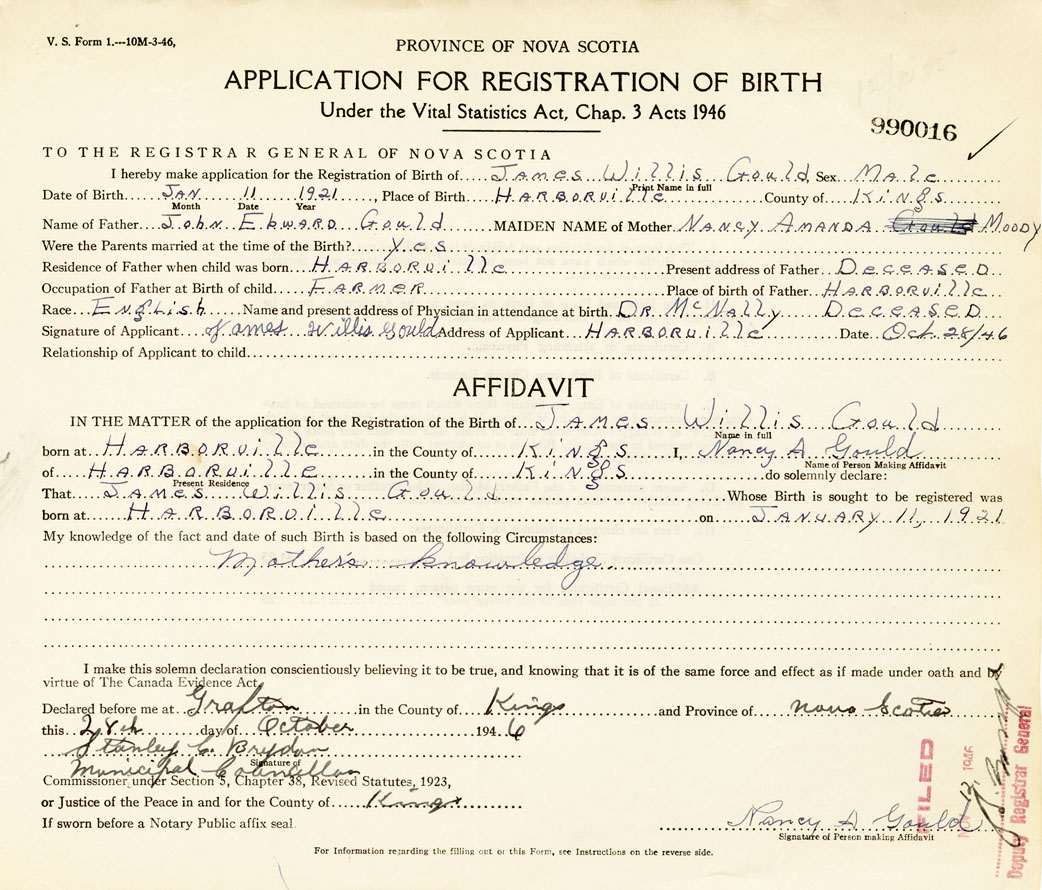 V. S. Form 1.---10M-3-46,
PROVINCE OF NOVA SCOTIA
APPLICATION FOR REGISTRATION OF BIRTH
Under the Vital Statistics Act, Chap. 3 Acts 1946
990016
TO THE REGISTRAR GENERAL OF NOVA SCOTIA
I hereby make application for the Registration of Birth of James Willis Gould Sex Male
Print Name in full
Date of Birth Jan 11 1921, Place of Birth Harborville County of Kings
Month Date Year
Name of Father John Edward Gould MAIDEN NAME of Mother Nancy Amanda Gould Moody
Were the Parents married at the time of the Birth? Yes
Residence of Father when child was born Harborville Present address of Father Deceased
Occupation of Father at Birth of child Farmer Place of birth of Father Harborville
Race English Name and present address of Physician in attendance at birth. Dr. McNally Deceased
Signature of Applicant James Willis Gould Address of Applicant Harborville Date Oct 28/46
Relationship of Applicant to child
AFFIDAVIT
IN THE MATTER of the application for the Registration of the Birth of James Willis Gould
Name in full
born at Harborville in the County of Kings I, Nancy A Gould
Name of Person Making Affidavit
of Harborville in the County of Kings do solemnly declare:
Present Residence
That James Willis Gould Whose Birth is sought to be registered was
born at Harborville on January 11, 1921
My knowledge of the fact and date of such Birth is based on the following Circumstances:
Mother's knowledge.
I make this solemn declaration conscientiously believing it to be true, and knowing that it is of the same force and effect as if made under oath and by
virtue of The Canada Evidence Act.
Declared before me at Grafton in the County of Kings and Province of Nova Scotia
this 28th day of October 1946
Stanley C. Brydon
Signature of
Municipal Councillor
Commissioner under Section 5, Chapter 38, Revised Statutes, 1923,
or Justice of the Peace in and for the County of Kings
If sworn before a Notary Public affix seal.
Nancy A Gould
Signature of Person making Affidavit
FILED
NOV 1946
Deputy Registrar General
For Information regarding the filling out of this Form, see Instructions on the reverse side.